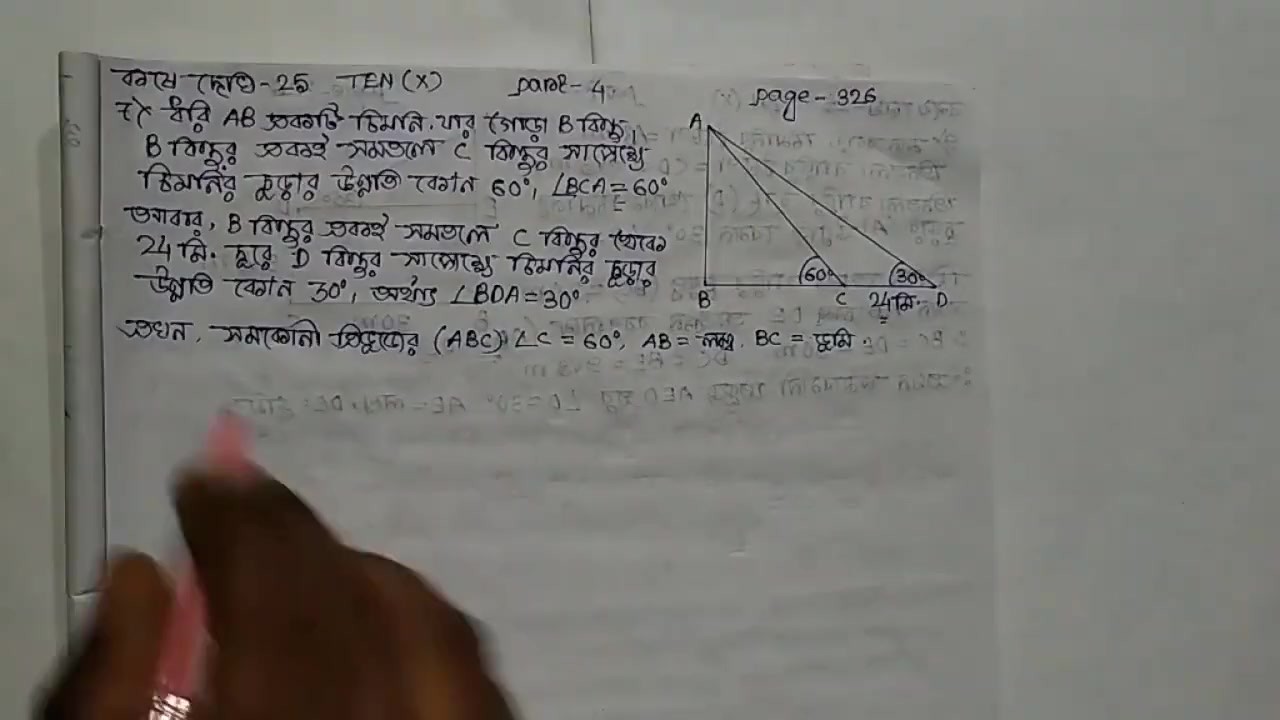 কষে দেখি-25 TEN (X) part-4 page-326
7) ধরি AB একটি চিমনি, যার গোড়া B বিন্দু,
B বিন্দুর একই সমতলে C বিন্দুর সাপেক্ষে
চিমনির চূড়ার উন্নতি কোণ 60°, ∠BCA = 60°
আবার, B বিন্দুর একই সমতলে C বিন্দুর থেকে
24মি. দূরে D বিন্দুর সাপেক্ষে চিমনির চূড়ার
উন্নতি কোণ 30°, অর্থাৎ ∠BDA = 30°
এখন, সমকোণী ত্রিভুজের (ABC) ∠C = 60°, AB = লম্ব, BC = ভূমি.
A
60°
30°
B
C
24মি.
D